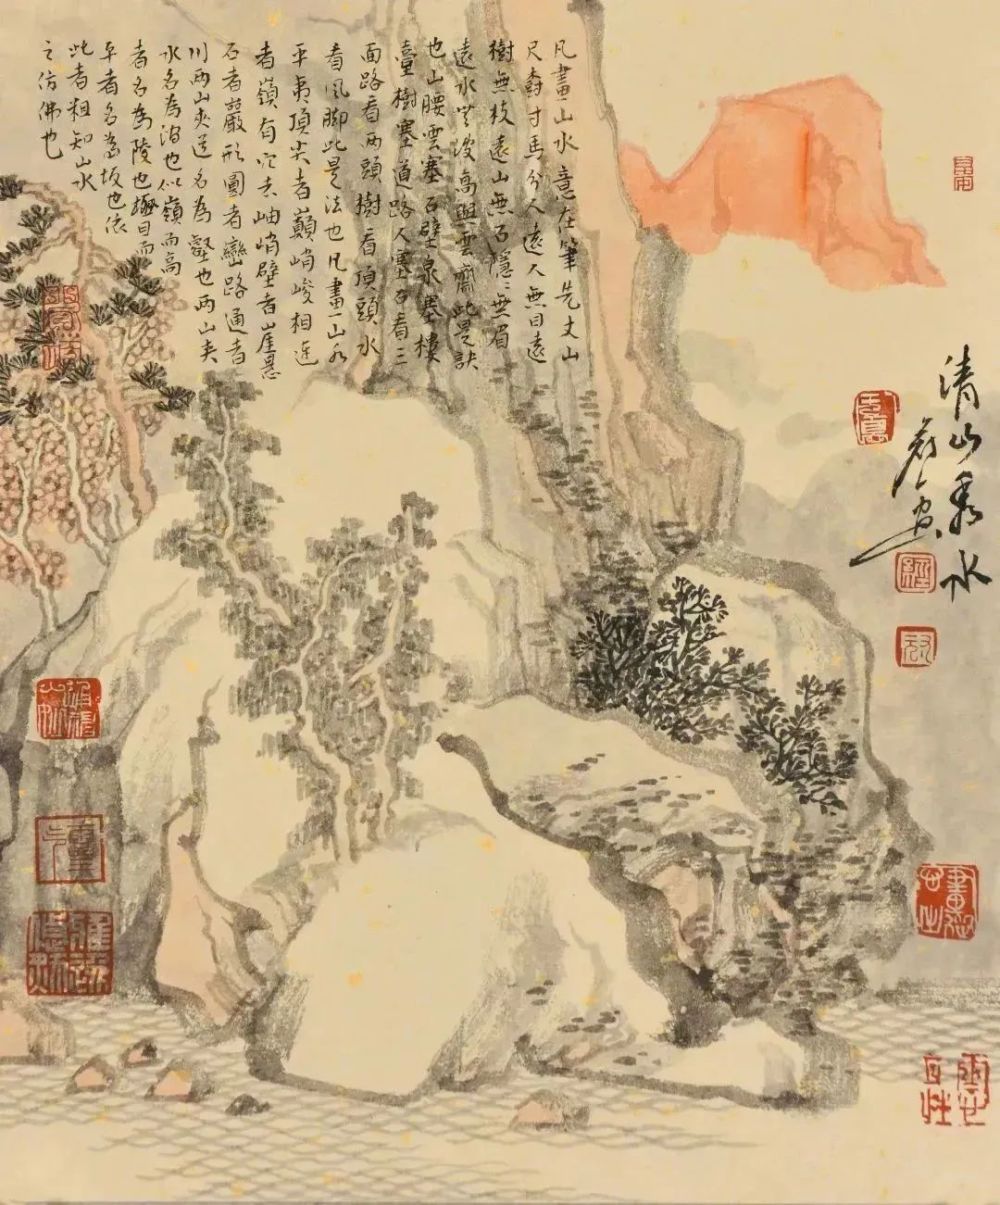 凡畫山水意在筆先丈山
尺樹寸馬分人遠人無目遠
樹無枝遠山無石隱〻無眉
遠水無波高與雲齊此是訣
也山腰雲塞石壁泉塞樓
臺樹塞道路人塞石看三
面路看兩頭樹看頂頭水
看風脚此是法也凡畫山水
平夷頂尖者巔峭峻相連
者嶺有穴者岫峭壁者崖懸
石者巖形圓者巒路通者
川兩山夾道名為壑也兩山夾
水名為澗也似嶺而高
者名為陵也極目而
平者名為坂也依
此者粗知山水
之仿佛也
清山秀水